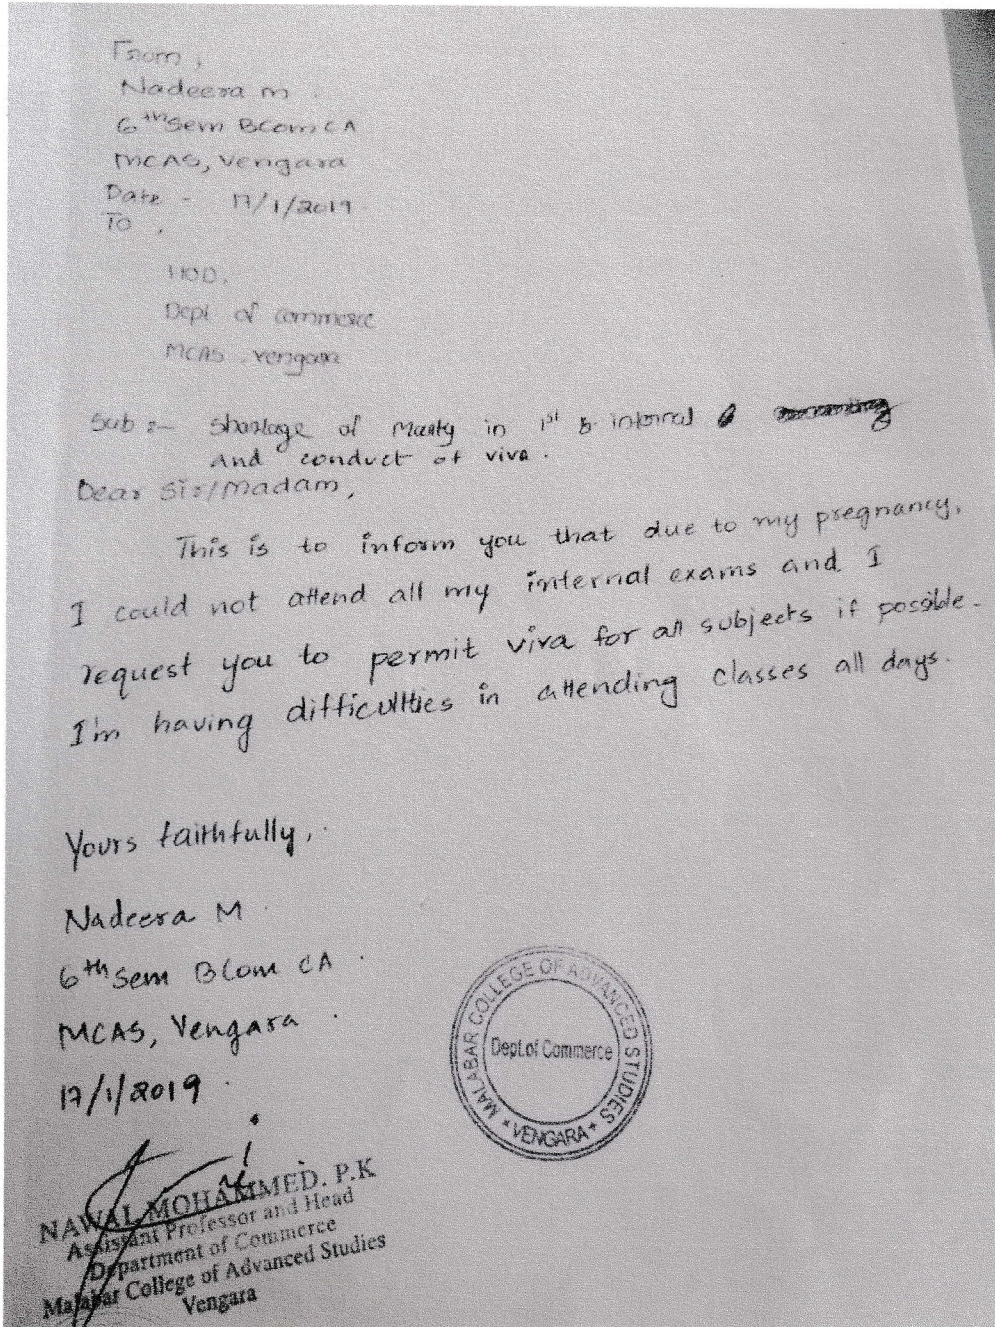 From,
Nadeera m
6th sem Bcom CA
MCAS, Vengara
Date - 17/1/2019
To,
HOD,
Dept of commerce
MCAS vengara
Sub :- shortage of in 1st internal
and conduct of viva.
Dear Sir/madam,
This is to inform you that due to my pregnancy,
I could not attend all my internal exams and I
request you to permit viva for all subjects if possible.
I'm having difficultties in attending classes all days.
Yours faithfully,
Nadeera M
6th sem Bcom CA
MCAS, Vengara
17/1/2019
MALABAR COLLEGE OF ADVANCED STUDIES
Dept.of Commerce
* VENGARA *
NAWAL MOHAMMED. P.K
Assistant Professor and Head
Department of Commerce
Malabar College of Advanced Studies
Vengara